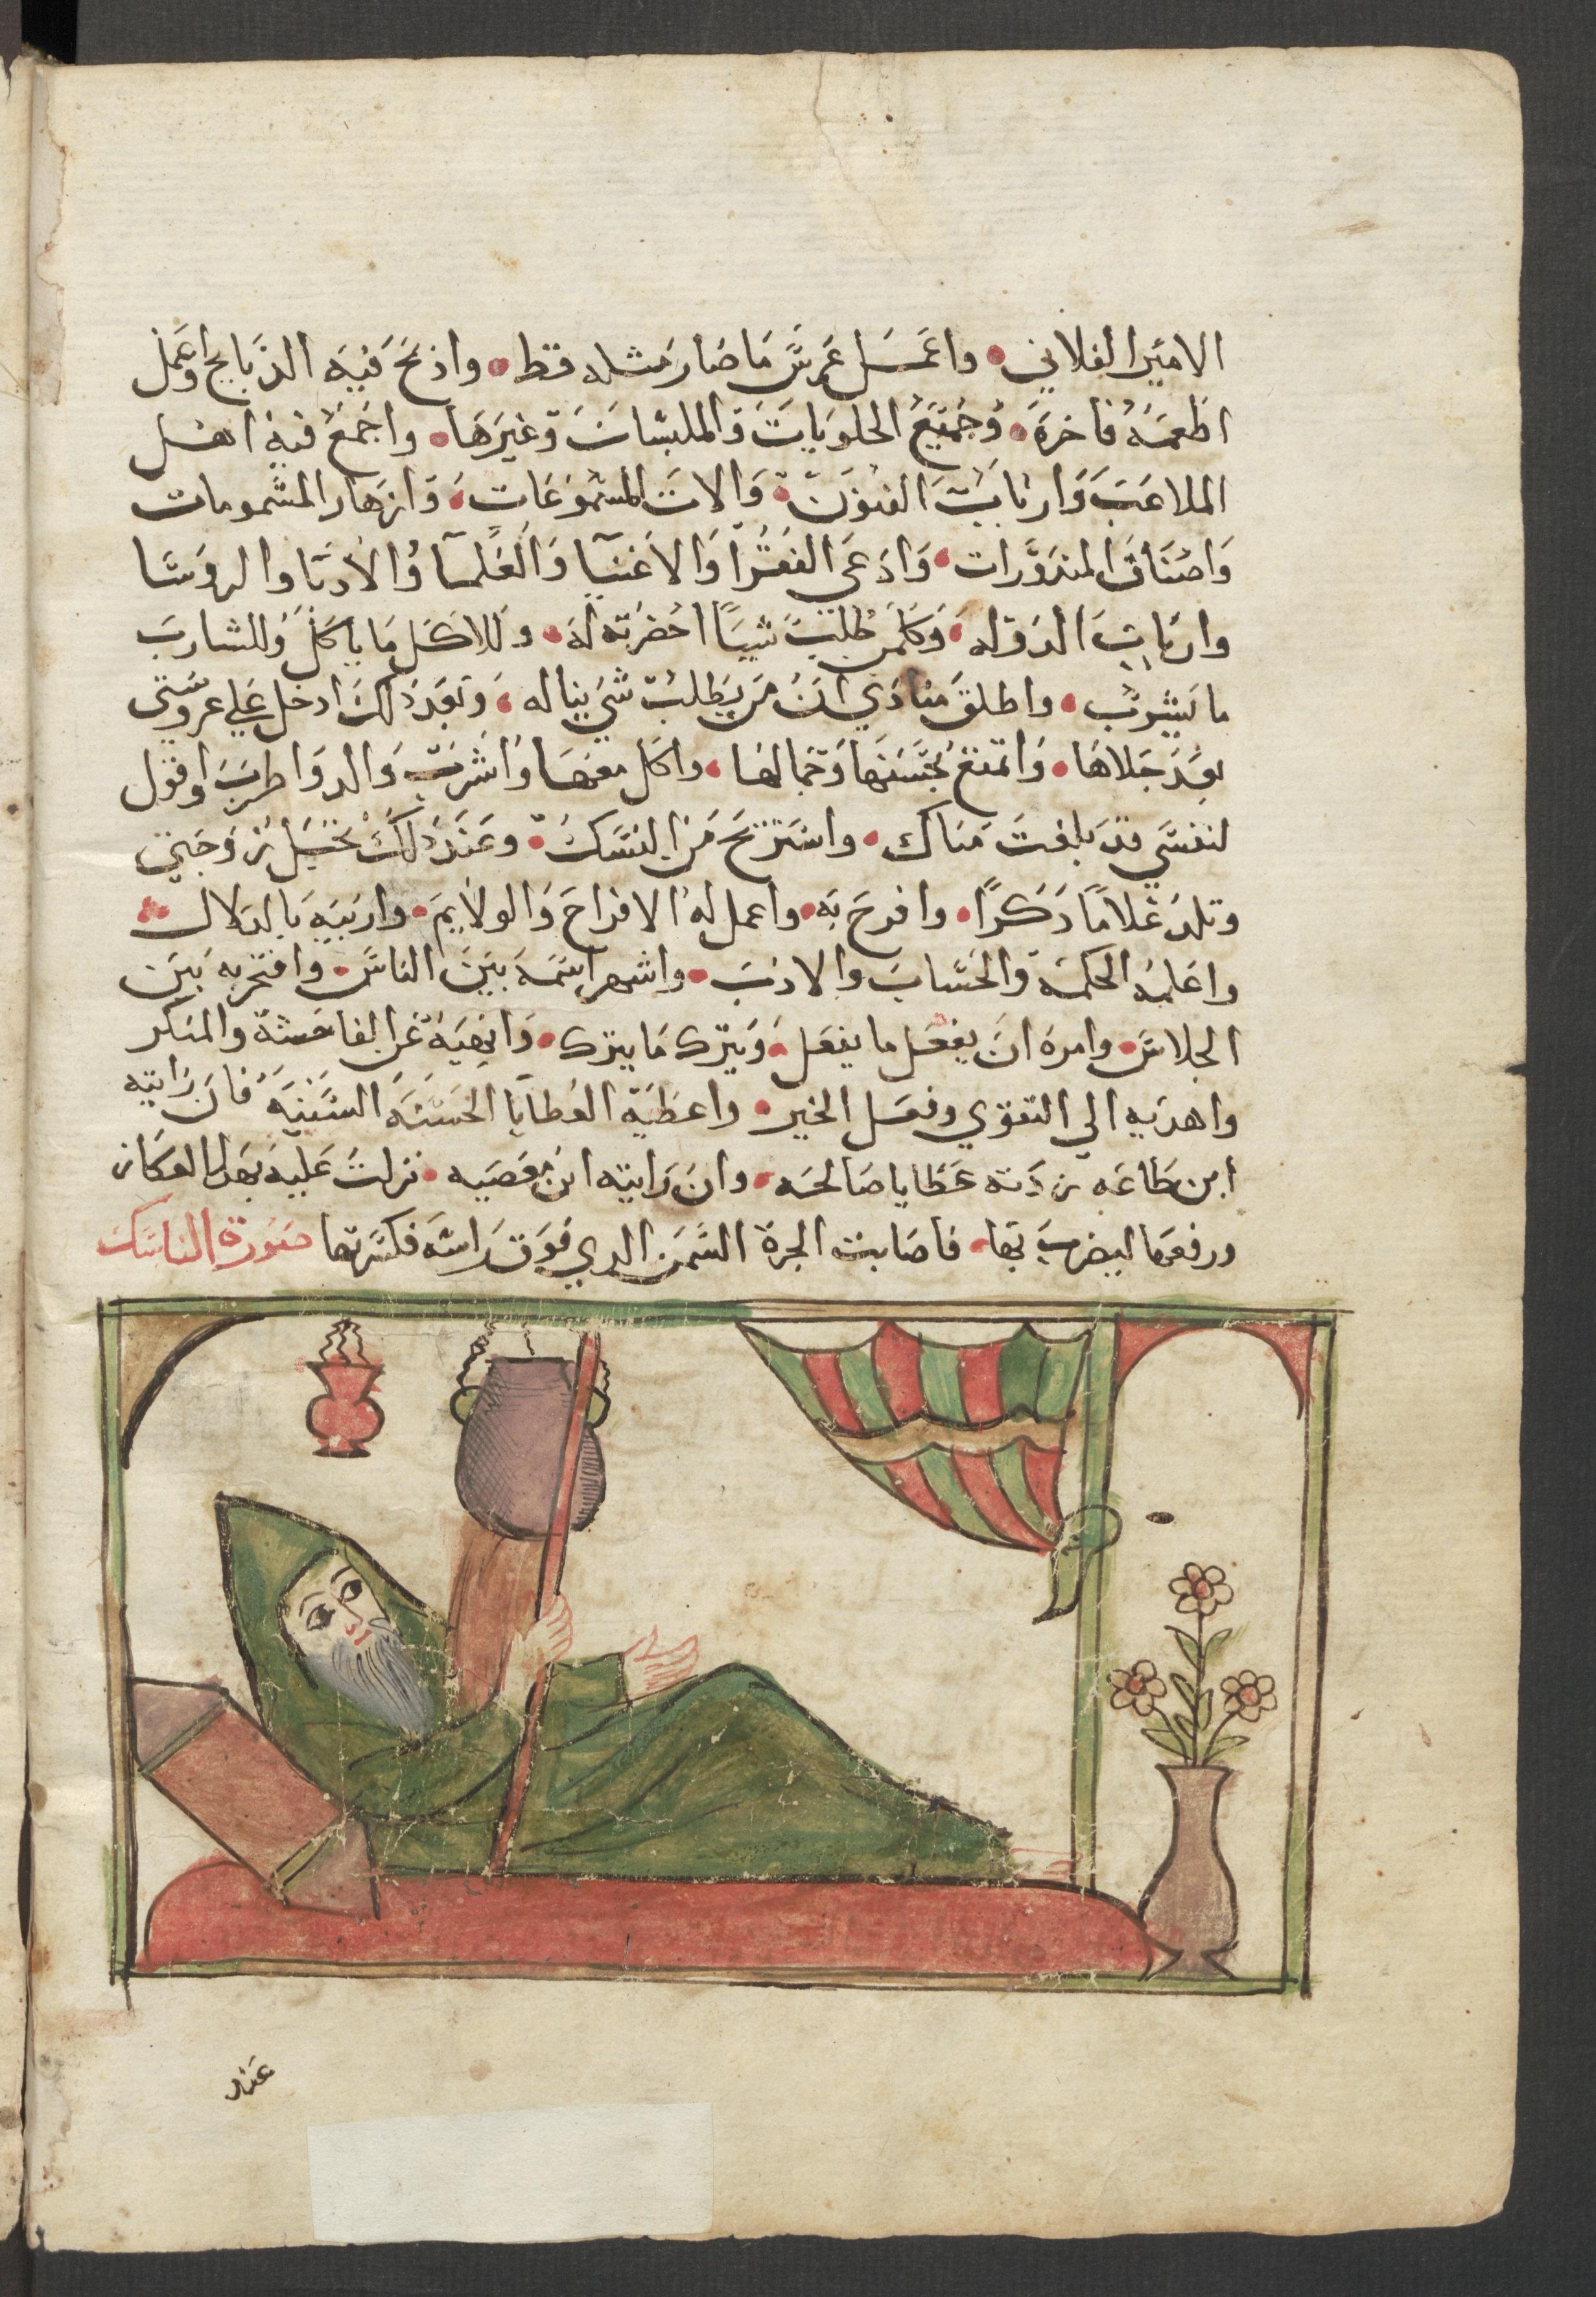 الامير الفلاني. واعمل عرس ما صار مثله قط. واذبح فيه الذبايح واعمل
اطعمه فاخره. وجميع الحلويات والملبسات وغيرها. واجمع فيه اهل
الملاعب وارباب الفنون. والات المسموعات. وازهار المشمومات
واصناف المندورات. وادعي الفقرا والاغنيا والعلما والادبا والروسا
وارباب الدوله. وكلمن طلب شيا احضرته له. وللاكل ما ياكل وللشارب
ما يشرب. واطلق منادي ان من يطلب شي يناله. وبعد دلك ادخل علي عروستي
بعد جلاها. واتمتع بحسنها وجمالها. واكل معها واشرب والد واطرب واقول
لنفسي قد بلغت مناك. واستريح من النسك. وعند دلك تحبل زوجتي
وتلد غلاما دكرا. وافرح به. واعمل له الافراح والولايم. واربيه بالدلال
واعلمه الحكمة والحساب والادب. واشهر اسمه بين الناس. وافتخر به بين
الجلاس. وامره ان يفعل ما يفعل. ويترك ما يترك. وانهيه عن الفاحشة والمنكر
واهديه الي التقوي وفعل الخير. واعطيه العطايا الحسنه السنيه فان رايته
ابن طاعه زدته عطايا صالحه. وان رايته ابن معصيه. نزلت عليه بهدا العكاز
ورفعها ليضرب بها. فاصابت الجرة السمن الدي فوق راسه فكسرتها صورة الناسك
عند